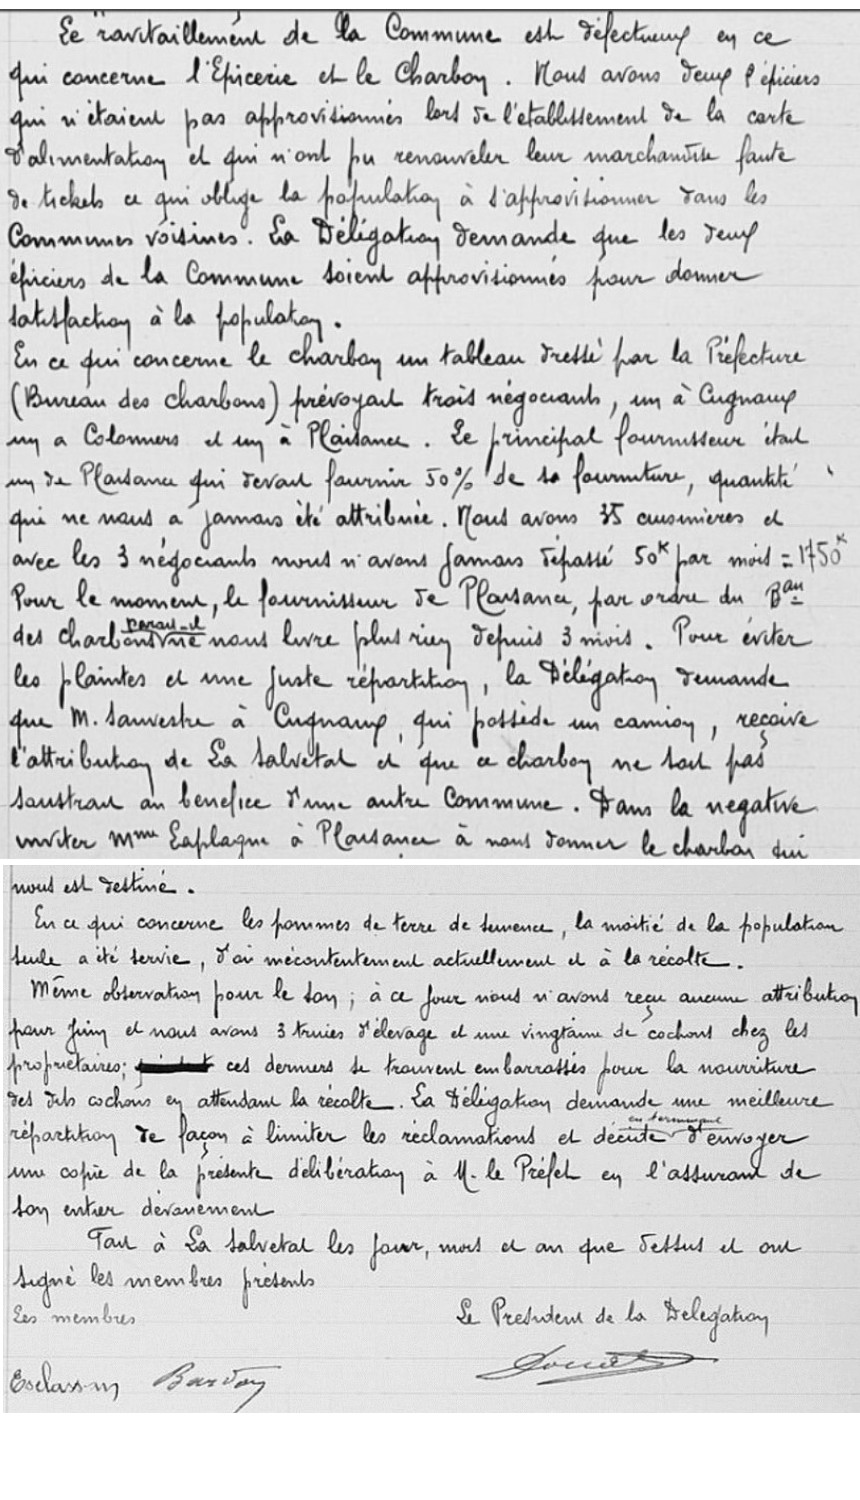 Le ravitaillement de la Commune est défectueux en ce
qui concerne l'Epicerie et le Charbon. Nous avons deux épiciers
qui n'étaient pas approvisionnés lors de l'établissement de la carte
d'alimentation et qui n'ont pu renouveler leur marchandise faute
de tickets ce qui oblige la population à s'approvisionner dans les
Communes voisines. La Délégation demande que les deux
épiciers de la Commune soient approvisionnés pour donner
satisfaction à la population.
En ce qui concerne le charbon un tableau dressé par la Préfecture
(Bureau des charbons) prévoyait trois négociants, un à Cugnaux
un a Colomiers et un à Plaisance. Le principal fournisseur était
un de Plaisance qui devait fournir 50% de sa fourniture, quantité
qui ne nous a jamais été attribuée. Nous avons 35 cuisinieres et
avec les 3 négociants nous n'avons jamais dépassé 50K par mois = 1750K
Pour le moment, le fournisseur de Plaisance, par ordre du Bau
des charbons parait-il ne nous livre plus rien depuis 3 mois. Pour éviter
les plaintes et une juste répartition, la Délégation demande
que M. Sauvestre à Cugnaux, qui possède un camion, reçoive
l'attribution de La Salvetat et que ce charbon ne soit pas
soustrait au benefice d'une autre Commune. Dans la negative
inviter Mme Laplagne à Plaisance à nous donner le charbon qui
nous est destiné.
En ce qui concerne les pommes de terre de semence, la moitié de la population
seule a été servie, d'où mécontentement actuellement et à la récolte.
Même observation pour le son; à ce jour nous n'avons reçu aucune attribution
pour Juin et nous avons 3 truies d'élevage et une vingtaine de cochons chez les
propriétaires; ces derniers se trouvent embarrassés pour la nourriture
des dits cochons en attendant la récolte. La Délégation demande une meilleure
répartition de façon à limiter les réclamations et décide en terminant d'envoyer
une copie de la présente délibération à M. le Préfet en l'assurant de
son entier dévouement
Fait à La Salvetat les jour, mois et an que dessus et ont
signé les membres présents
Les membres Le President de la Delegation
Esclassan Bardou